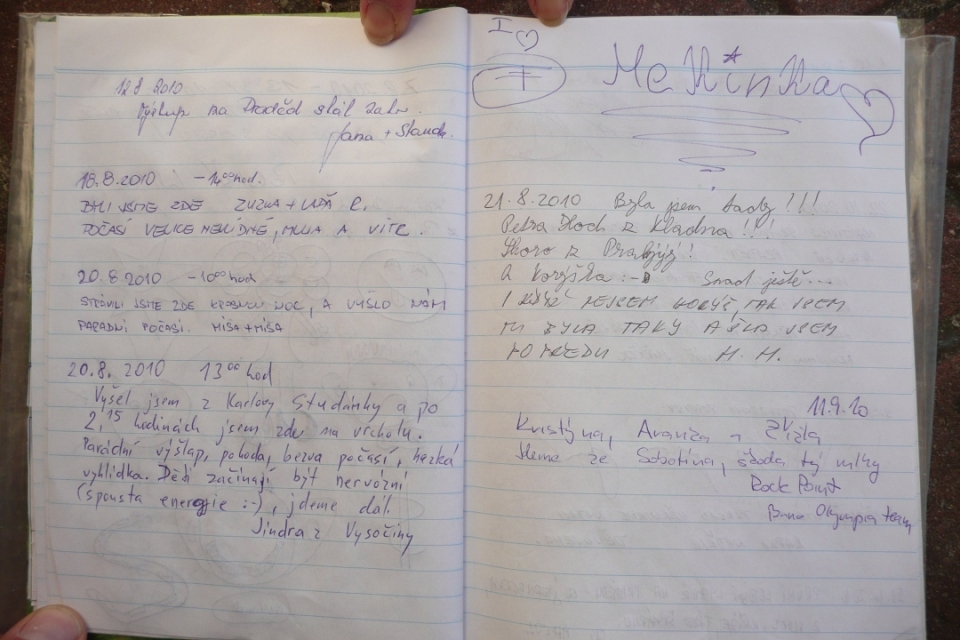 12.8 2010
Výstup na Praděd stál za to.
Jana + Standa.
18.8.2010 - 14⁰⁰ hod.
BYLI JSME ZDE ZUZKA + LÁĎA R.
POČASÍ VELICE NEVLÍDNÉ, MLHA A VÍTR.
20.8 2010 - 10⁰⁰ hod
STRÁVILI JSME ZDE KRÁSNOU NOC, A VYŠLO NÁM
PARÁDNÍ POČASÍ. MÍŠA + MÍŠA
20.8. 2010 13⁰⁰ hod
Vyšel jsem z Karlovy Studánky a po
2,¹⁵ hodinách jsem zde na vrcholu.
Parádní výšlap, pohoda, bezva počasí, hezká
vyhlídka. Děti začínají být nervózní
(spousta energie :-), jdeme dál.
Jindra z Vysočiny
I ♡
+ MeNinKa
21.8.2010 Byla jsem tady !!!
Petra z Kladna !!!
Skoro z Prahyyy!
A :-D Snad ještě...
I KDYŽ NEJSEM TAK JSEM
TU BYLA TAKY A ŠLA JSEM
H. H.
11.9.10
Kristýna, a Žížla
Jdeme ze Sobotína, škoda té mlhy
Rock Point
Olympia team